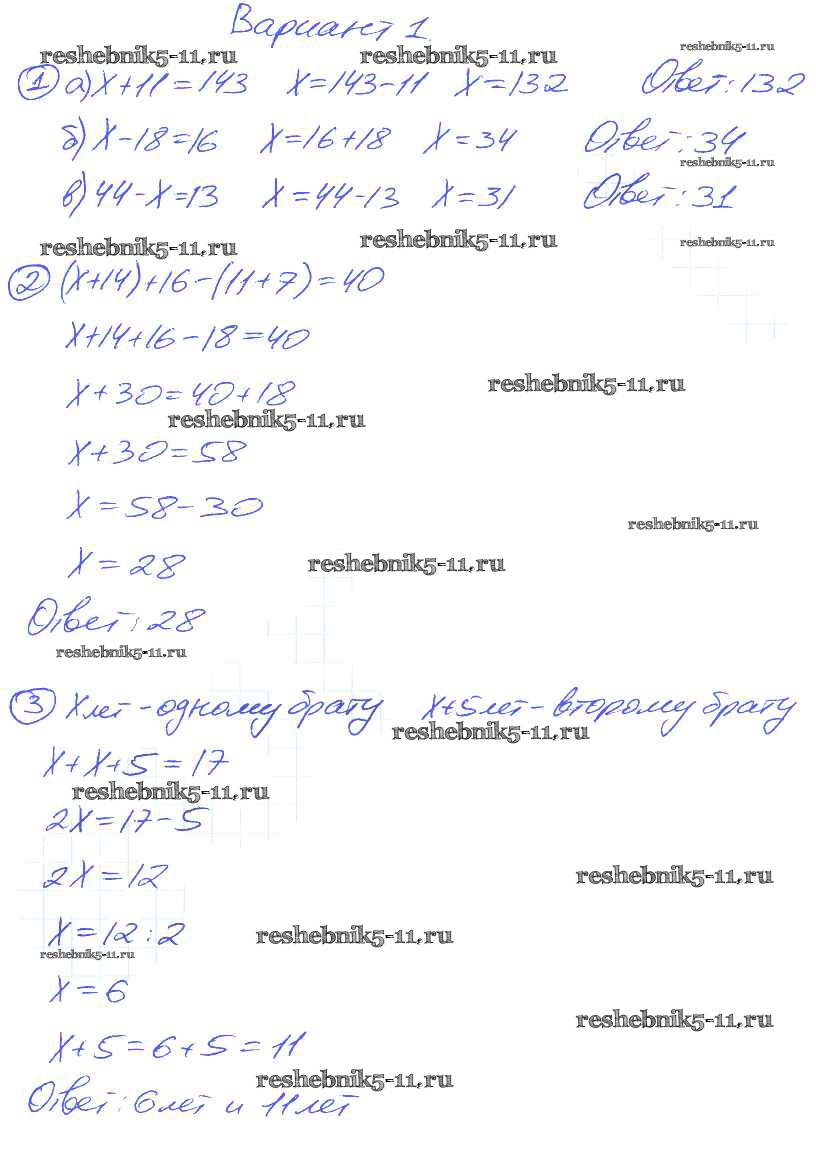 Вариант 1.
reshebnik5-11.ru reshebnik5-11.ru reshebnik5-11.ru
1 а) x+11=143 x=143-11 x=132 Ответ: 132
б) x-18=16 x=16+18 x=34 Ответ: 34
reshebnik5-11.ru
в) 44-x=13 x=44-13 x=31 Ответ: 31
reshebnik5-11.ru reshebnik5-11.ru reshebnik5-11.ru
2 (x+14)+16-(11+7)=40
x+14+16-18=40
x+30=40+18
reshebnik5-11.ru
reshebnik5-11.ru
x+30=58
x=58-30
reshebnik5-11.ru
x=28
reshebnik5-11.ru
Ответ: 28
reshebnik5-11.ru
3 x лет - одному брату x+5 лет - второму брату
reshebnik5-11.ru
x+x+5=17
reshebnik5-11.ru
2x=17-5
2x=12
reshebnik5-11.ru
x=12:2
reshebnik5-11.ru
reshebnik5-11.ru
x=6
reshebnik5-11.ru
x+5=6+5=11
reshebnik5-11.ru
Ответ: 6 лет и 11 лет